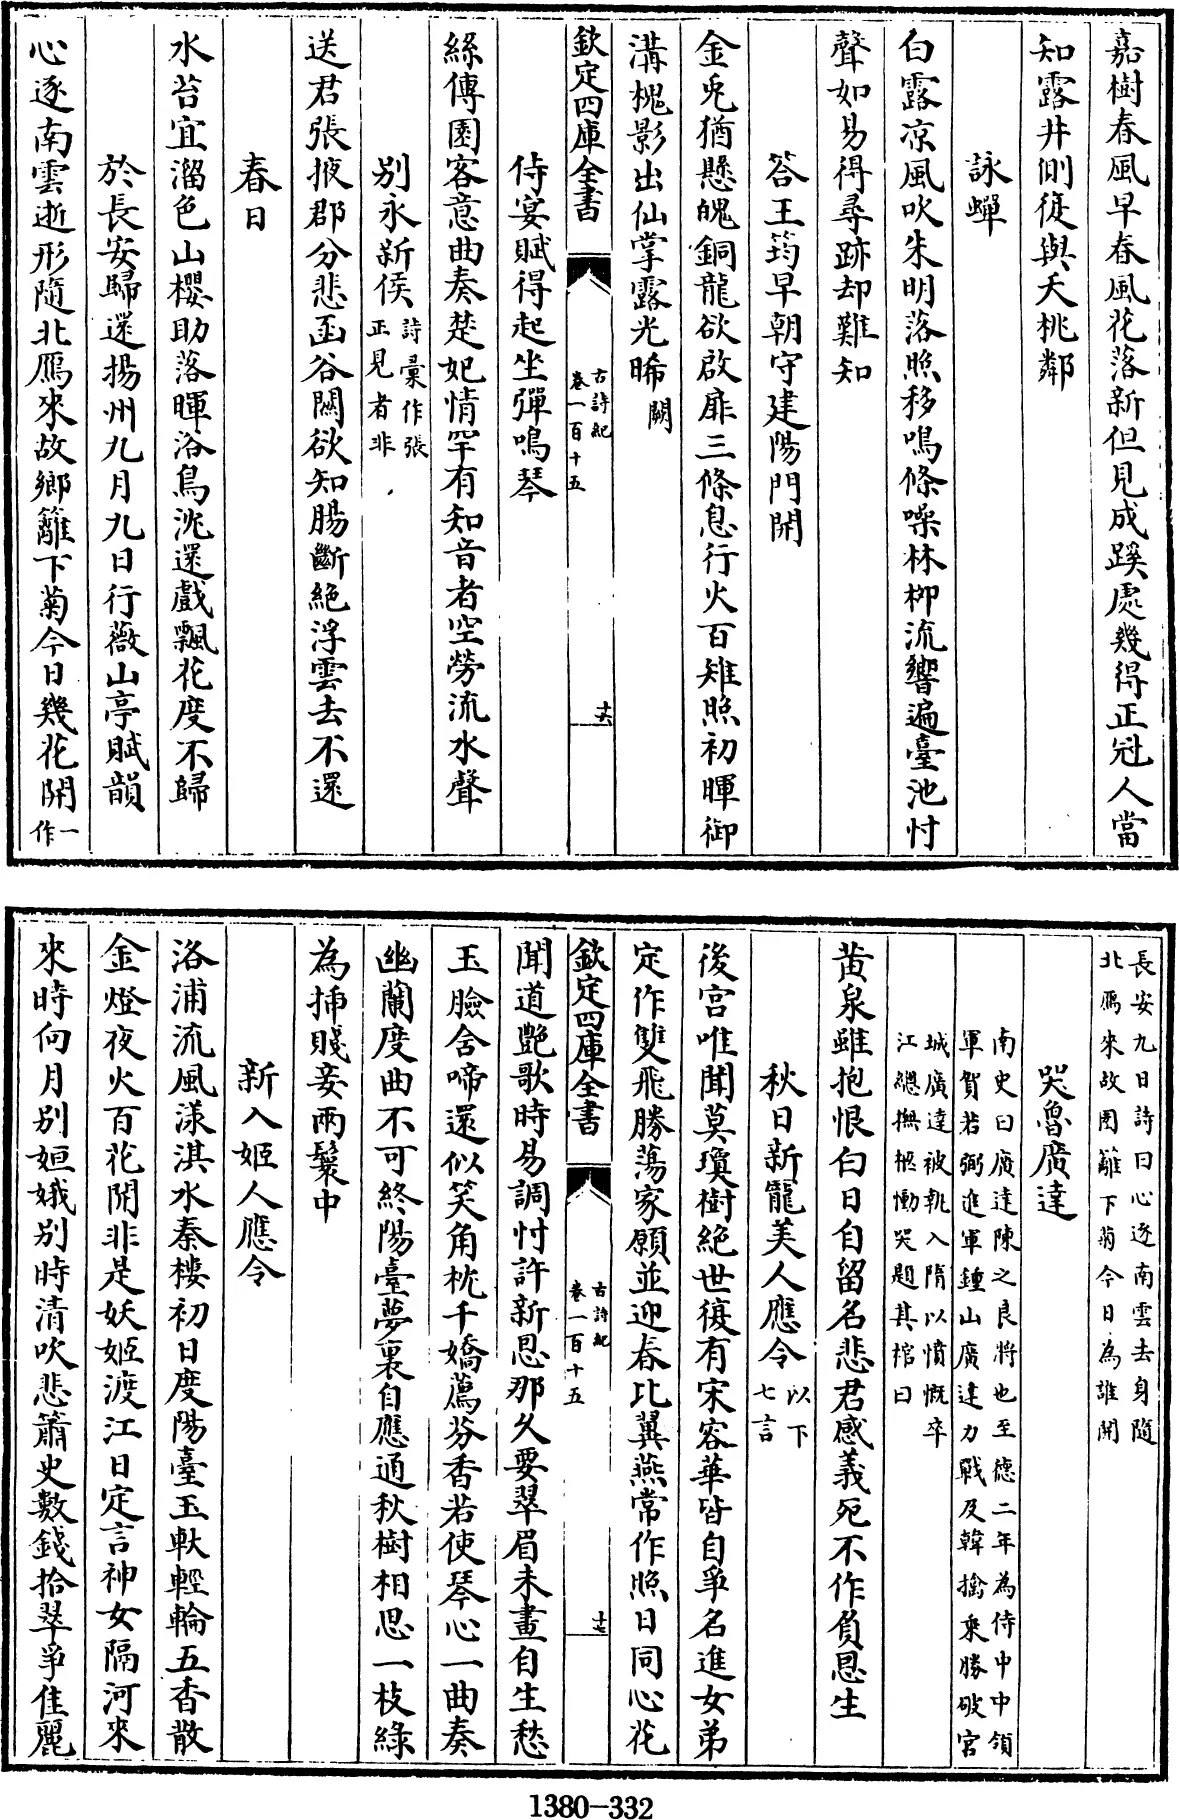 嘉樹春風早春風花落新但見成蹊處幾得正冠人當
知露井側復與夭桃鄰
詠蟬
白露凉風吹朱明落照移鳴條噪林柳流響遍臺池忖
聲如易得尋跡却難知
答王筠早朝守建陽門開
金兎猶懸魄銅龍欲啟扉三條息行火百雉照初暉御
溝槐影出仙掌露光晞闕
欽定四庫全書
古詩紀
卷一百十五
十六
侍宴賦得起坐彈鳴琴
絲傳園客意曲奏楚妃情罕有知音者空勞流水聲
别永新侯詩彚作張
正見者非
送君張掖郡分悲函谷關欲知腸斷絶浮雲去不還
春日
水苔宜溜色山櫻助落暉浴鳥沈還戲飄花度不歸
於長安歸還揚州九月九日行薇山亭賦韻
心逐南雲逝形隨北鴈來故鄉籬下菊今日幾花開一
作
長安九日詩曰心逐南雲去身隨
北鴈來故園籬下菊今日為誰開
哭魯廣達
南史曰廣達陳之良將也至德二年為侍中中領
軍賀若弼進軍鍾山廣達力戰及韓擒乘勝破宫
城廣達被執入隋以憤慨卒
江總撫柩慟哭題其棺曰
黄泉雖抱恨白日自留名悲君感義死不作負恩生
秋日新寵美人應令以下
七言
後宫唯聞莫瓊樹絶世復有宋容華皆自爭名進女弟
定作雙飛勝蕩家願並迎春比翼燕常作照日同心花
欽定四庫全書
古詩紀
卷一百十五
十七
聞道艷歌時易調忖許新恩那久要翠眉未畫自生愁
玉臉含啼還似笑角枕千嬌薦芬香若使琴心一曲奏
幽蘭度曲不可終陽臺夢裏自應通秋樹相思一枝緑
為揷賤妾兩鬟中
新入姬人應令
洛浦流風漾淇水秦樓初日度陽臺玉軑輕輪五香散
金燈夜火百花開非是妖姬渡江日定言神女隔河來
來時向月别姮娥别時清吹悲簫史數錢拾翠爭佳麗
1380-332